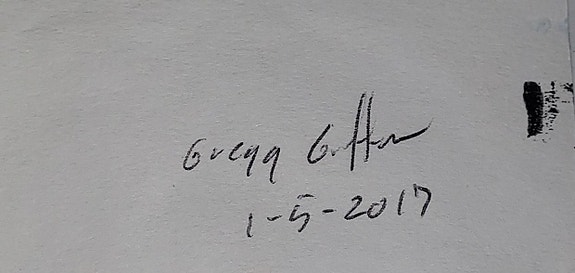 Gregg
1-5-2017